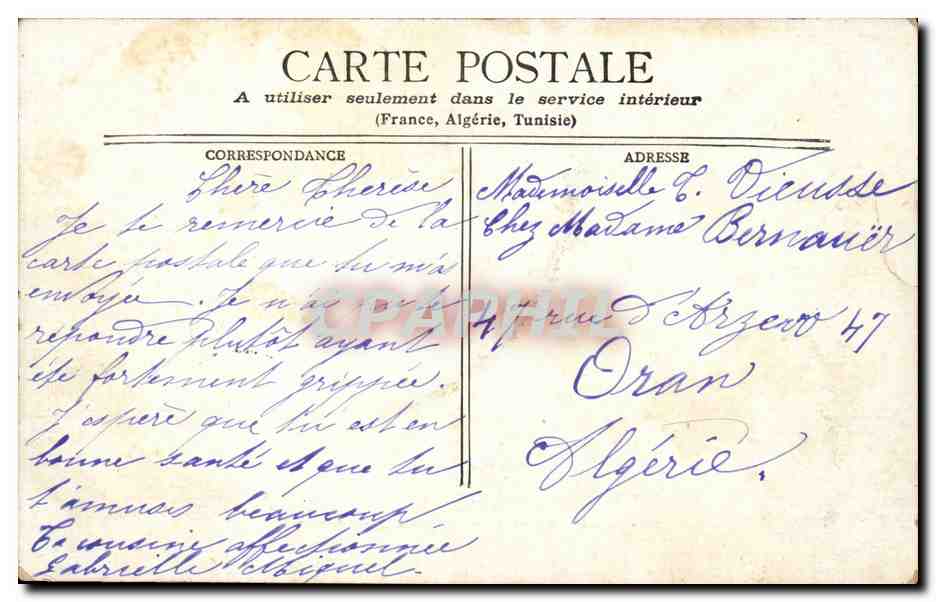 CARTE POSTALE
A utiliser seulement dans le service intérieur
(France, Algérie, Tunisie)
CORRESPONDANCE
Chère Therèse
Je te remercie de la
carte postale que tu m'as
envoyée. Je n'ai pu te
répondre plutôt ayant
été fortement grippée.
J'espère que tu est en
bonne santé et que tu
t'amuses beaucoup
Ta cousine affectionnée
Gabrielle Miquel
ADRESSE
Mademoiselle T. Vieusse
Chez Madame Bernauër
47 rue d'Arzew 47
Oran
Algérie.
CPARHTI